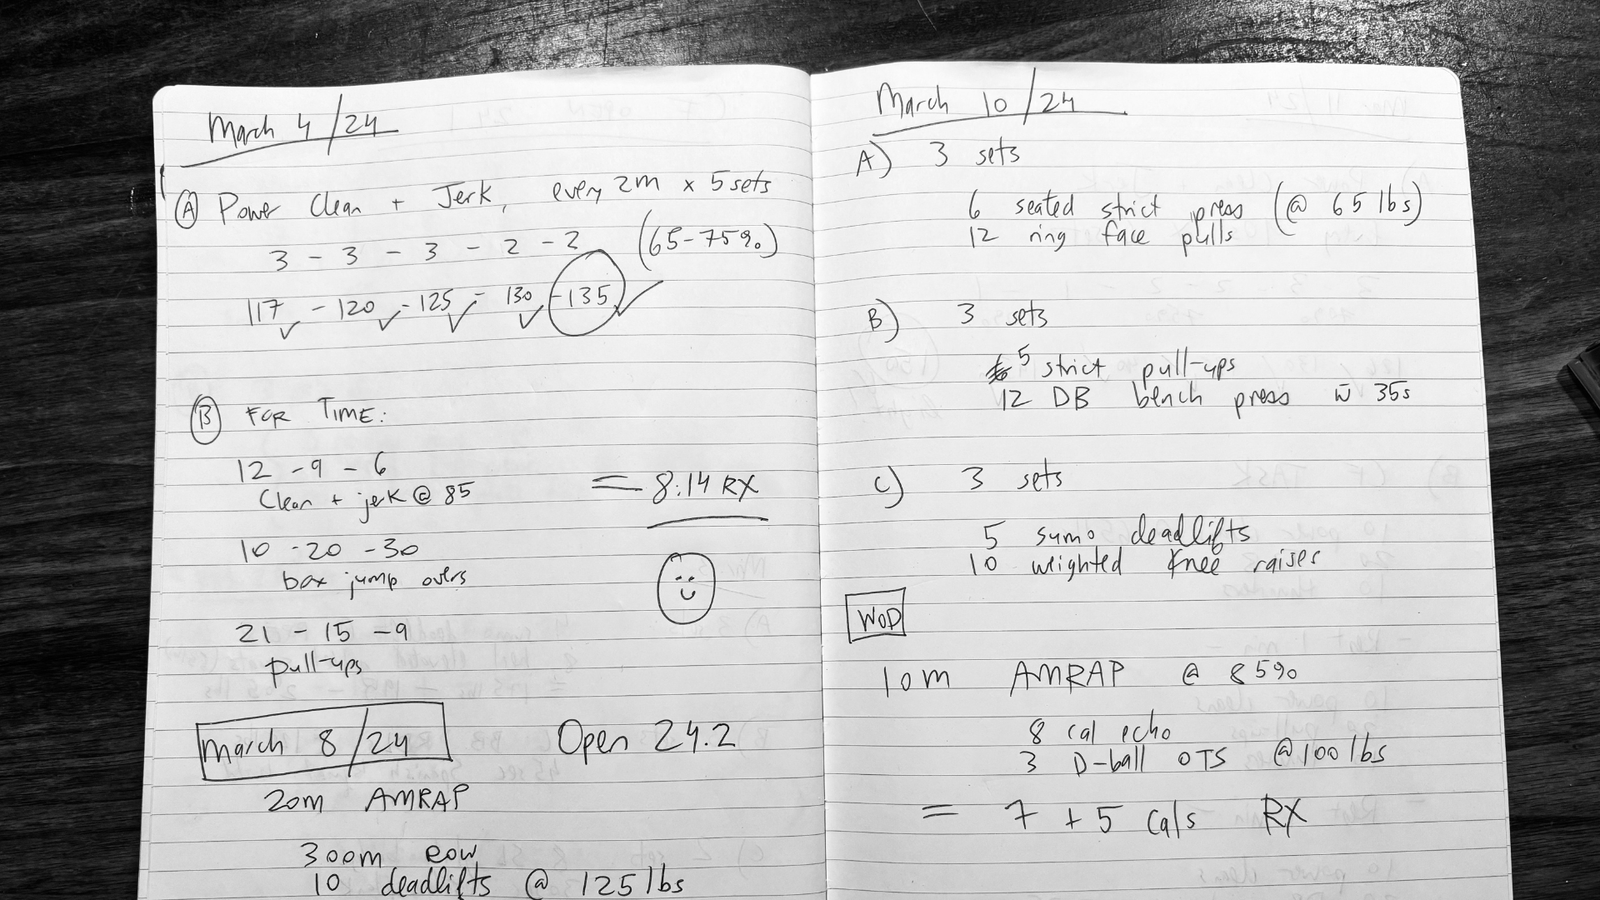 March 4/24
A Power Clean + Jerk, every 2m x 5 sets
3 - 3 - 3 - 2 - 2 (65-75%)
117 - 120 - 125 - 130 - 135
B FOR TIME:
12 - 9 - 6
Clean + jerk @ 85
= 8:14 RX
10 - 20 - 30
box jump overs
21 - 15 - 9
pull-ups
March 8/24 Open 24.2
20m AMRAP
300m row
10 deadlifts @ 125 lbs
March 10/24
A) 3 sets
6 seated strict press (@ 65 lbs)
12 ring face pulls
B) 3 sets
5 strict pull-ups
12 DB bench press w̄ 35s
C) 3 sets
5 sumo deadlifts
10 weighted knee raises
WOD
10m AMRAP @ 85%
8 cal echo
3 D-ball OTS @ 100 lbs
= 7 + 5 cals RX